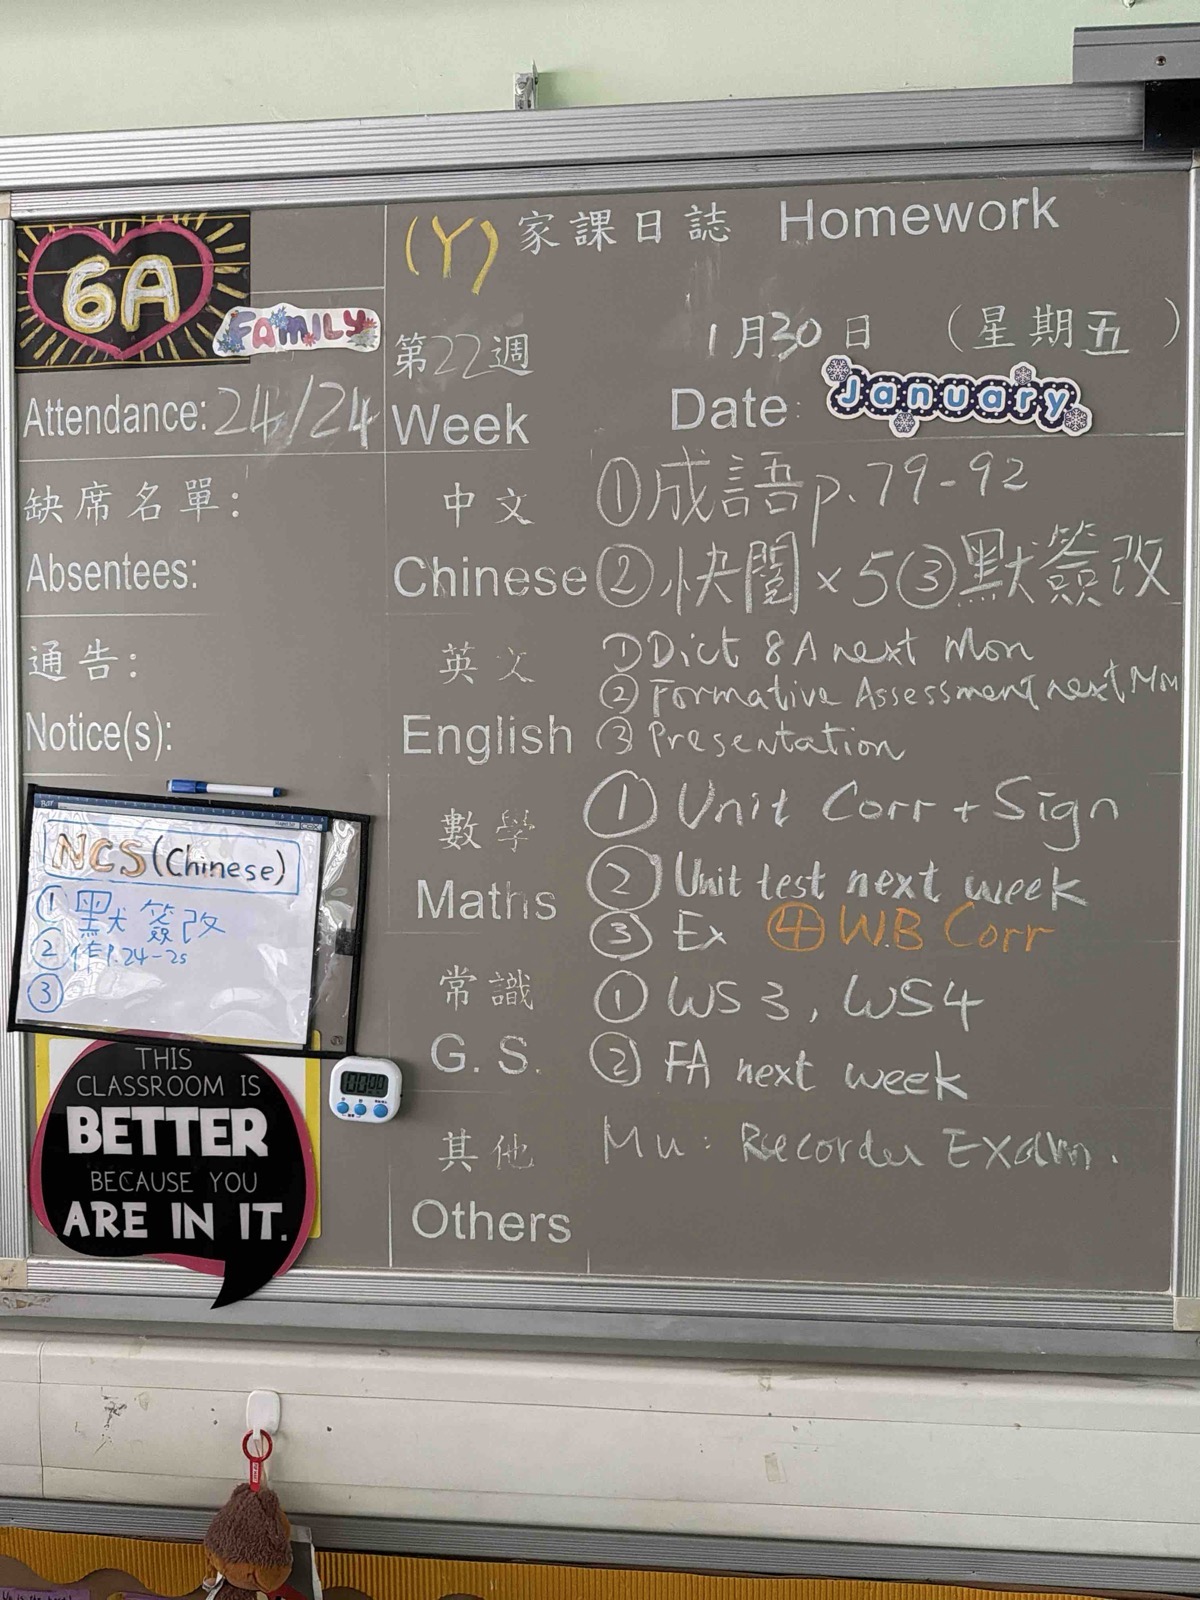 6A
FAMILY
(Y) 家課日誌 Homework
第22週 1月30日 (星期五)
Week Date: January
Attendance: 24/24
缺席名單:
Absentees:
通告:
Notice(s):
中文
Chinese
①成語p.79-92
②快閱×5③默簽改
英文
English
①Dict 8A next Mon
②Formative Assessment next Mon
③Presentation
數學
Maths
①Unit Corr + Sign
②Unit test next week
③Ex ④W.B Corr
常識
G. S.
①WS3, WS4
②FA next week
其他
Others
Mu: Recorder Exam.
NCS (Chinese)
①默簽改
②作P.24-25
③
THIS
CLASSROOM IS
BETTER
BECAUSE YOU
ARE IN IT.
00:00